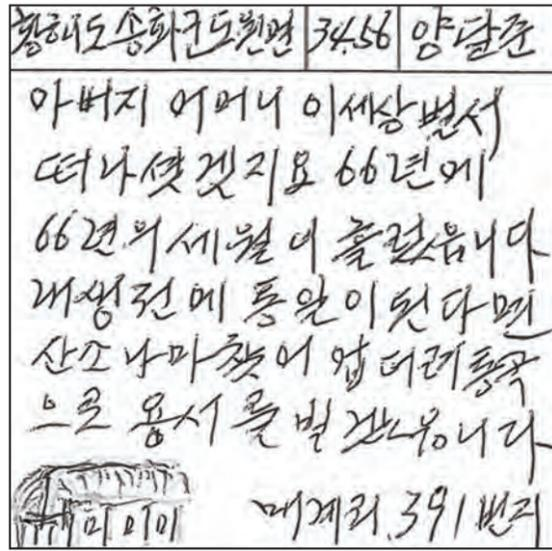 황해도송화군도원면 34.56 양달준
아버지 어머니 이세상벌서
떠나셧겟지요 66년에
66년의 세월이 흘렀읍니다
내생전에 통일이된다면
산소나마찾어 업더려통곡
으로 용서를 빌겠읍니다
매계리.391번지